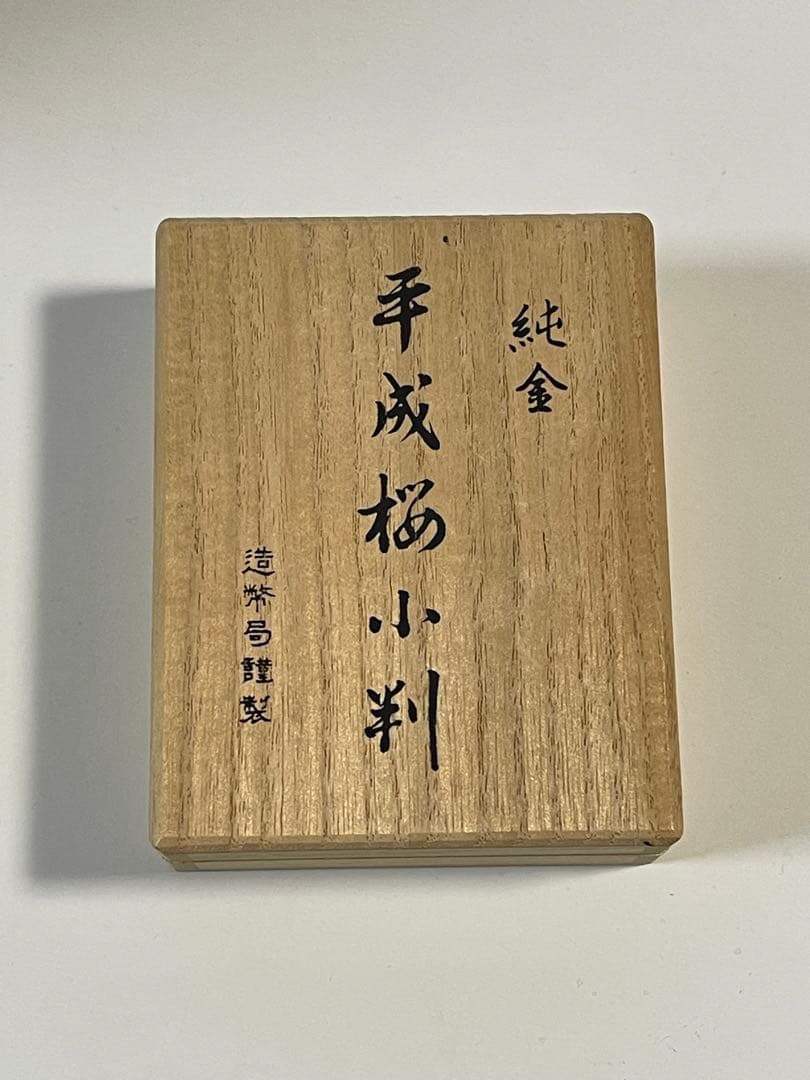 純金
平成桜小判
造幣局謹製